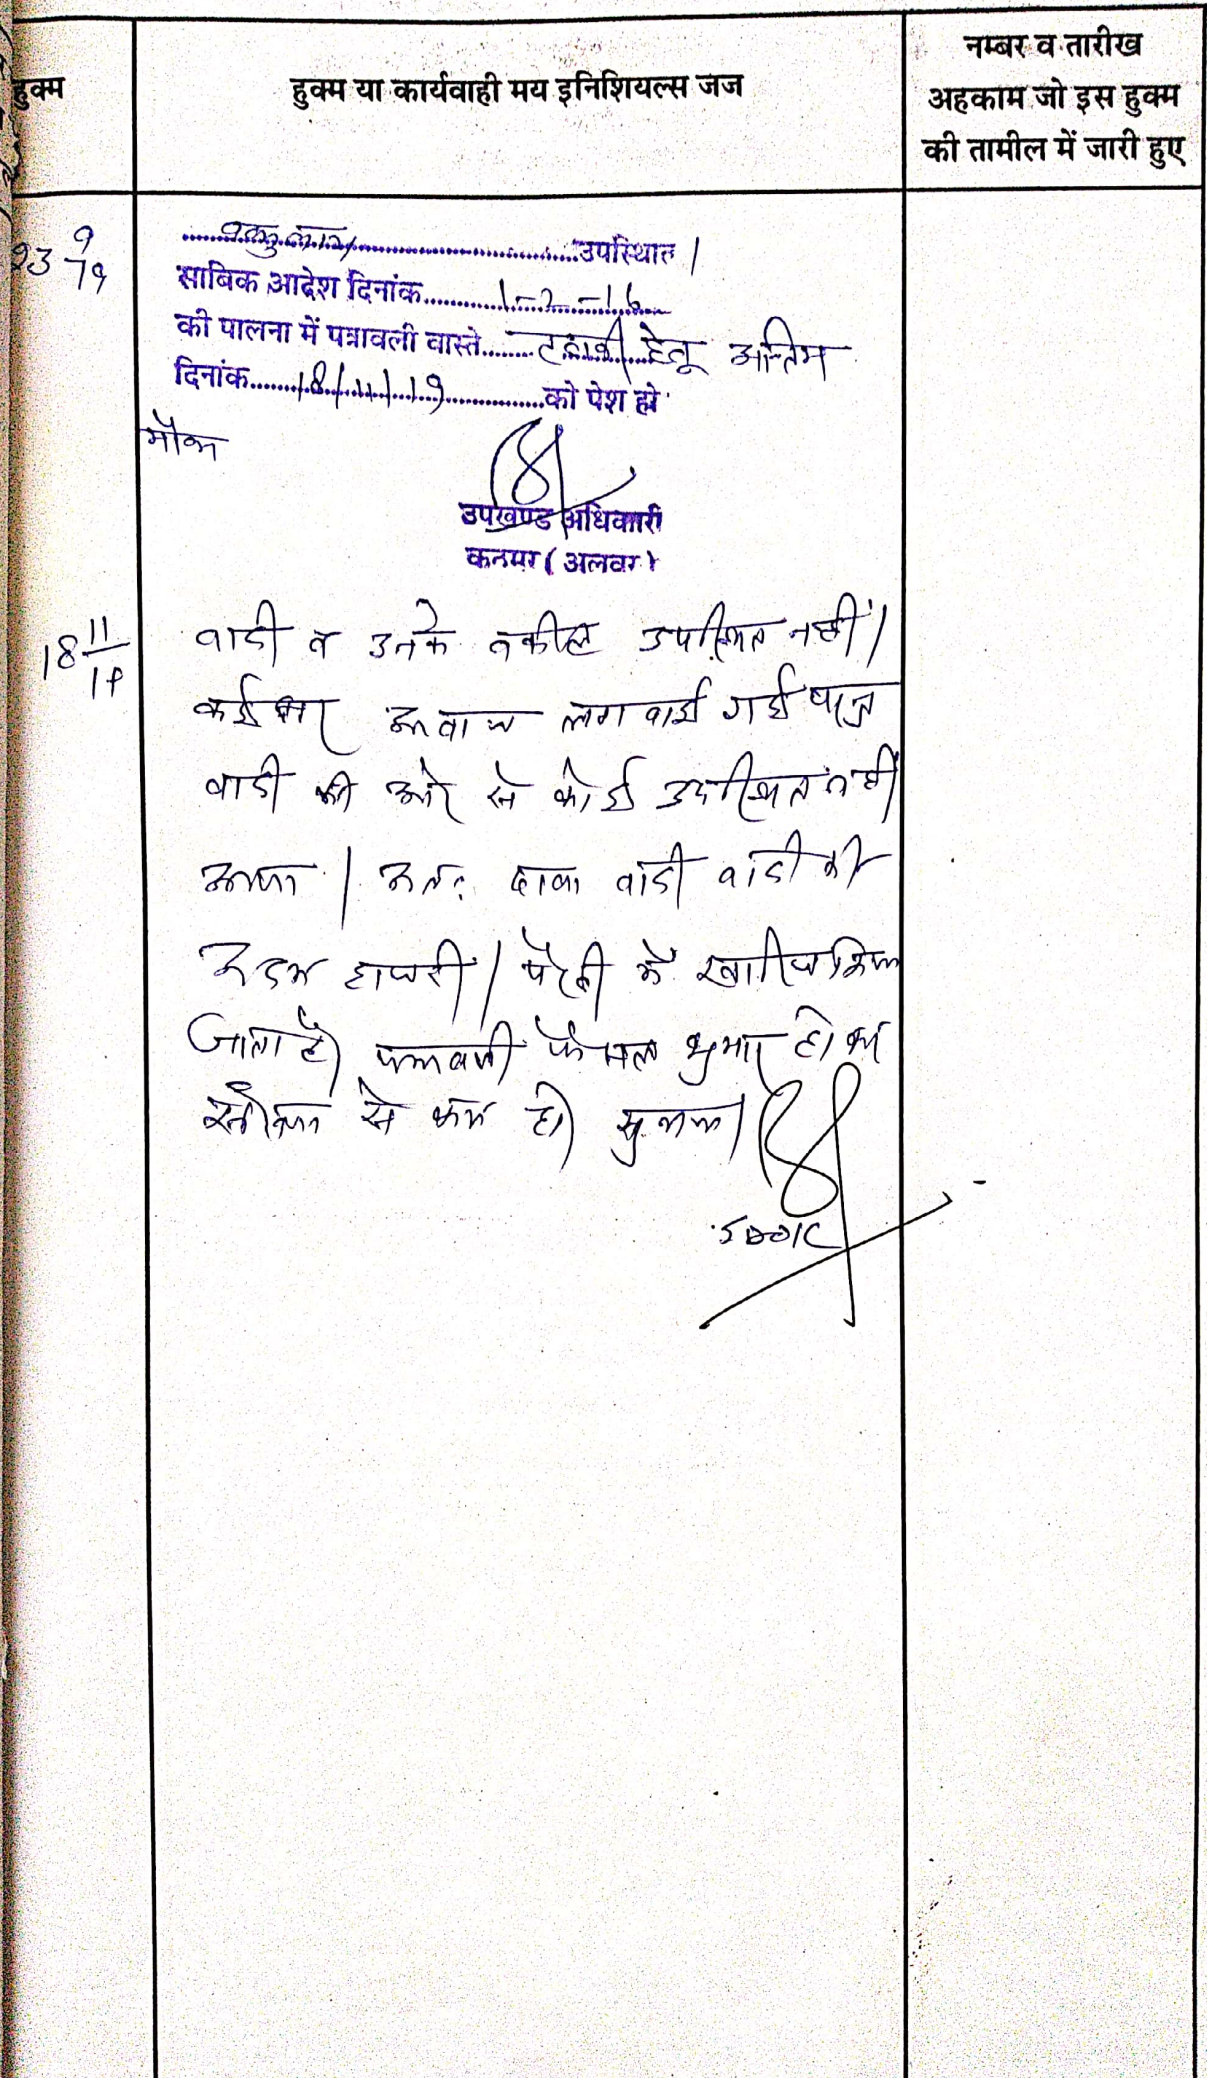 हुक्म
हुक्म या कार्यवाही मय इनिशियल्स जज
नम्बर व तारीख
अहकाम जो इस हुक्म
की तामील में जारी हुए
23 9/19
उपस्थित।
साबिक आदेश दिनांक 1-2-16
की पालना में पत्रावली वास्ते तलबी हेतू अन्तिम
दिनांक 18/11/19 को पेश हो
मौका
उपखण्ड अधिकारी
कठूमर (अलवर)
18 11/19
वादी व उनके वकील उपस्थित नहीं।
कई बार आवाज लगवाई गई परन्तु
वादी की ओर से कोई उपस्थित नहीं
आया। अतः दावा वादी वादी की
अदम हाजरी / पैरवी में खारिज किया
जाता है। पत्रावली फैसल शुमार होकर
से कम हो।